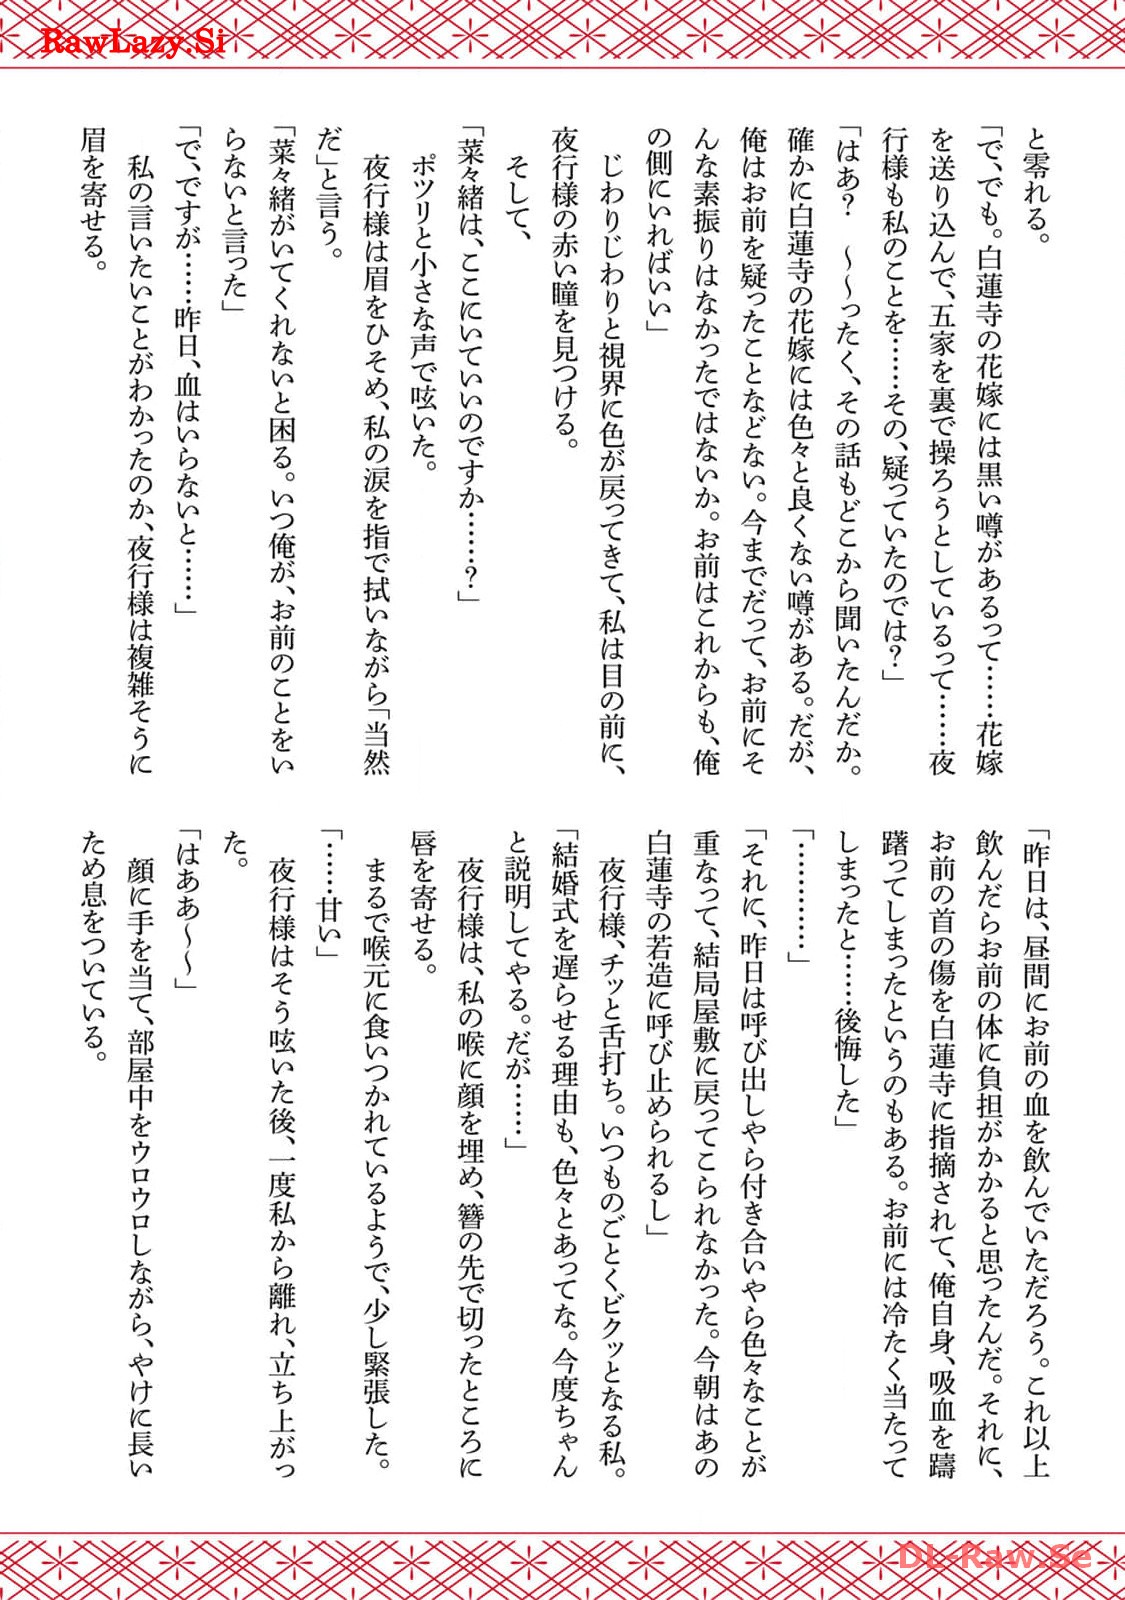 RawLazy.Si
と零れる。
「で、でも。白蓮寺の花嫁には黒い噂があるって……花嫁
を送り込んで、五家を裏で操ろうとしているって……夜
行様も私のことを……その、疑っていたのでは？」
「はあ？　～～ったく、その話もどこから聞いたんだか。
確かに白蓮寺の花嫁には色々と良くない噂がある。だが、
俺はお前を疑ったことなどない。今までだって、お前にそ
んな素振りはなかったではないか。お前はこれからも、俺
の側にいればいい」
　じわりじわりと視界に色が戻ってきて、私は目の前に、
夜行様の赤い瞳を見つける。
　そして、
「菜々緒は、ここにいていいのですか……？」
　ポツリと小さな声で呟いた。
　夜行様は眉をひそめ、私の涙を指で拭いながら「当然
だ」と言う。
「菜々緒がいてくれないと困る。いつ俺が、お前のことをい
らないと言った」
「で、ですが……昨日、血はいらないと……」
　私の言いたいことがわかったのか、夜行様は複雑そうに
眉を寄せる。
「昨日は、昼間にお前の血を飲んでいただろう。これ以上
飲んだらお前の体に負担がかかると思ったんだ。それに、
お前の首の傷を白蓮寺に指摘されて、俺自身、吸血を躊
躇ってしまったというのもある。お前には冷たく当たって
しまったと……後悔した」
「…………」
「それに、昨日は呼び出しやら付き合いやら色々なことが
重なって、結局屋敷に戻ってこられなかった。今朝はあの
白蓮寺の若造に呼び止められるし」
　夜行様、チッと舌打ち。いつものごとくビクッとなる私。
「結婚式を遅らせる理由も、色々とあってな。今度ちゃん
と説明してやる。だが……」
　夜行様は、私の喉に顔を埋め、簪の先で切ったところに
唇を寄せる。
　まるで喉元に食いつかれているようで、少し緊張した。
「……甘い」
　夜行様はそう呟いた後、一度私から離れ、立ち上がっ
た。
「はああ～～」
　顔に手を当て、部屋中をウロウロしながら、やけに長い
ため息をついている。
DL-Raw.Se